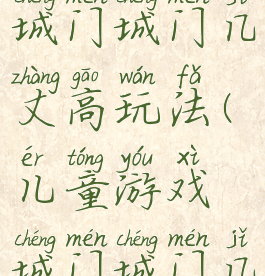 chéng mén chéng mén jǐ
城门城门几
zhàng gāo wán fǎ
丈高玩法(
ér tóng yóu xì
儿童游戏
chéng mén chéng mén jǐ
城门城门几